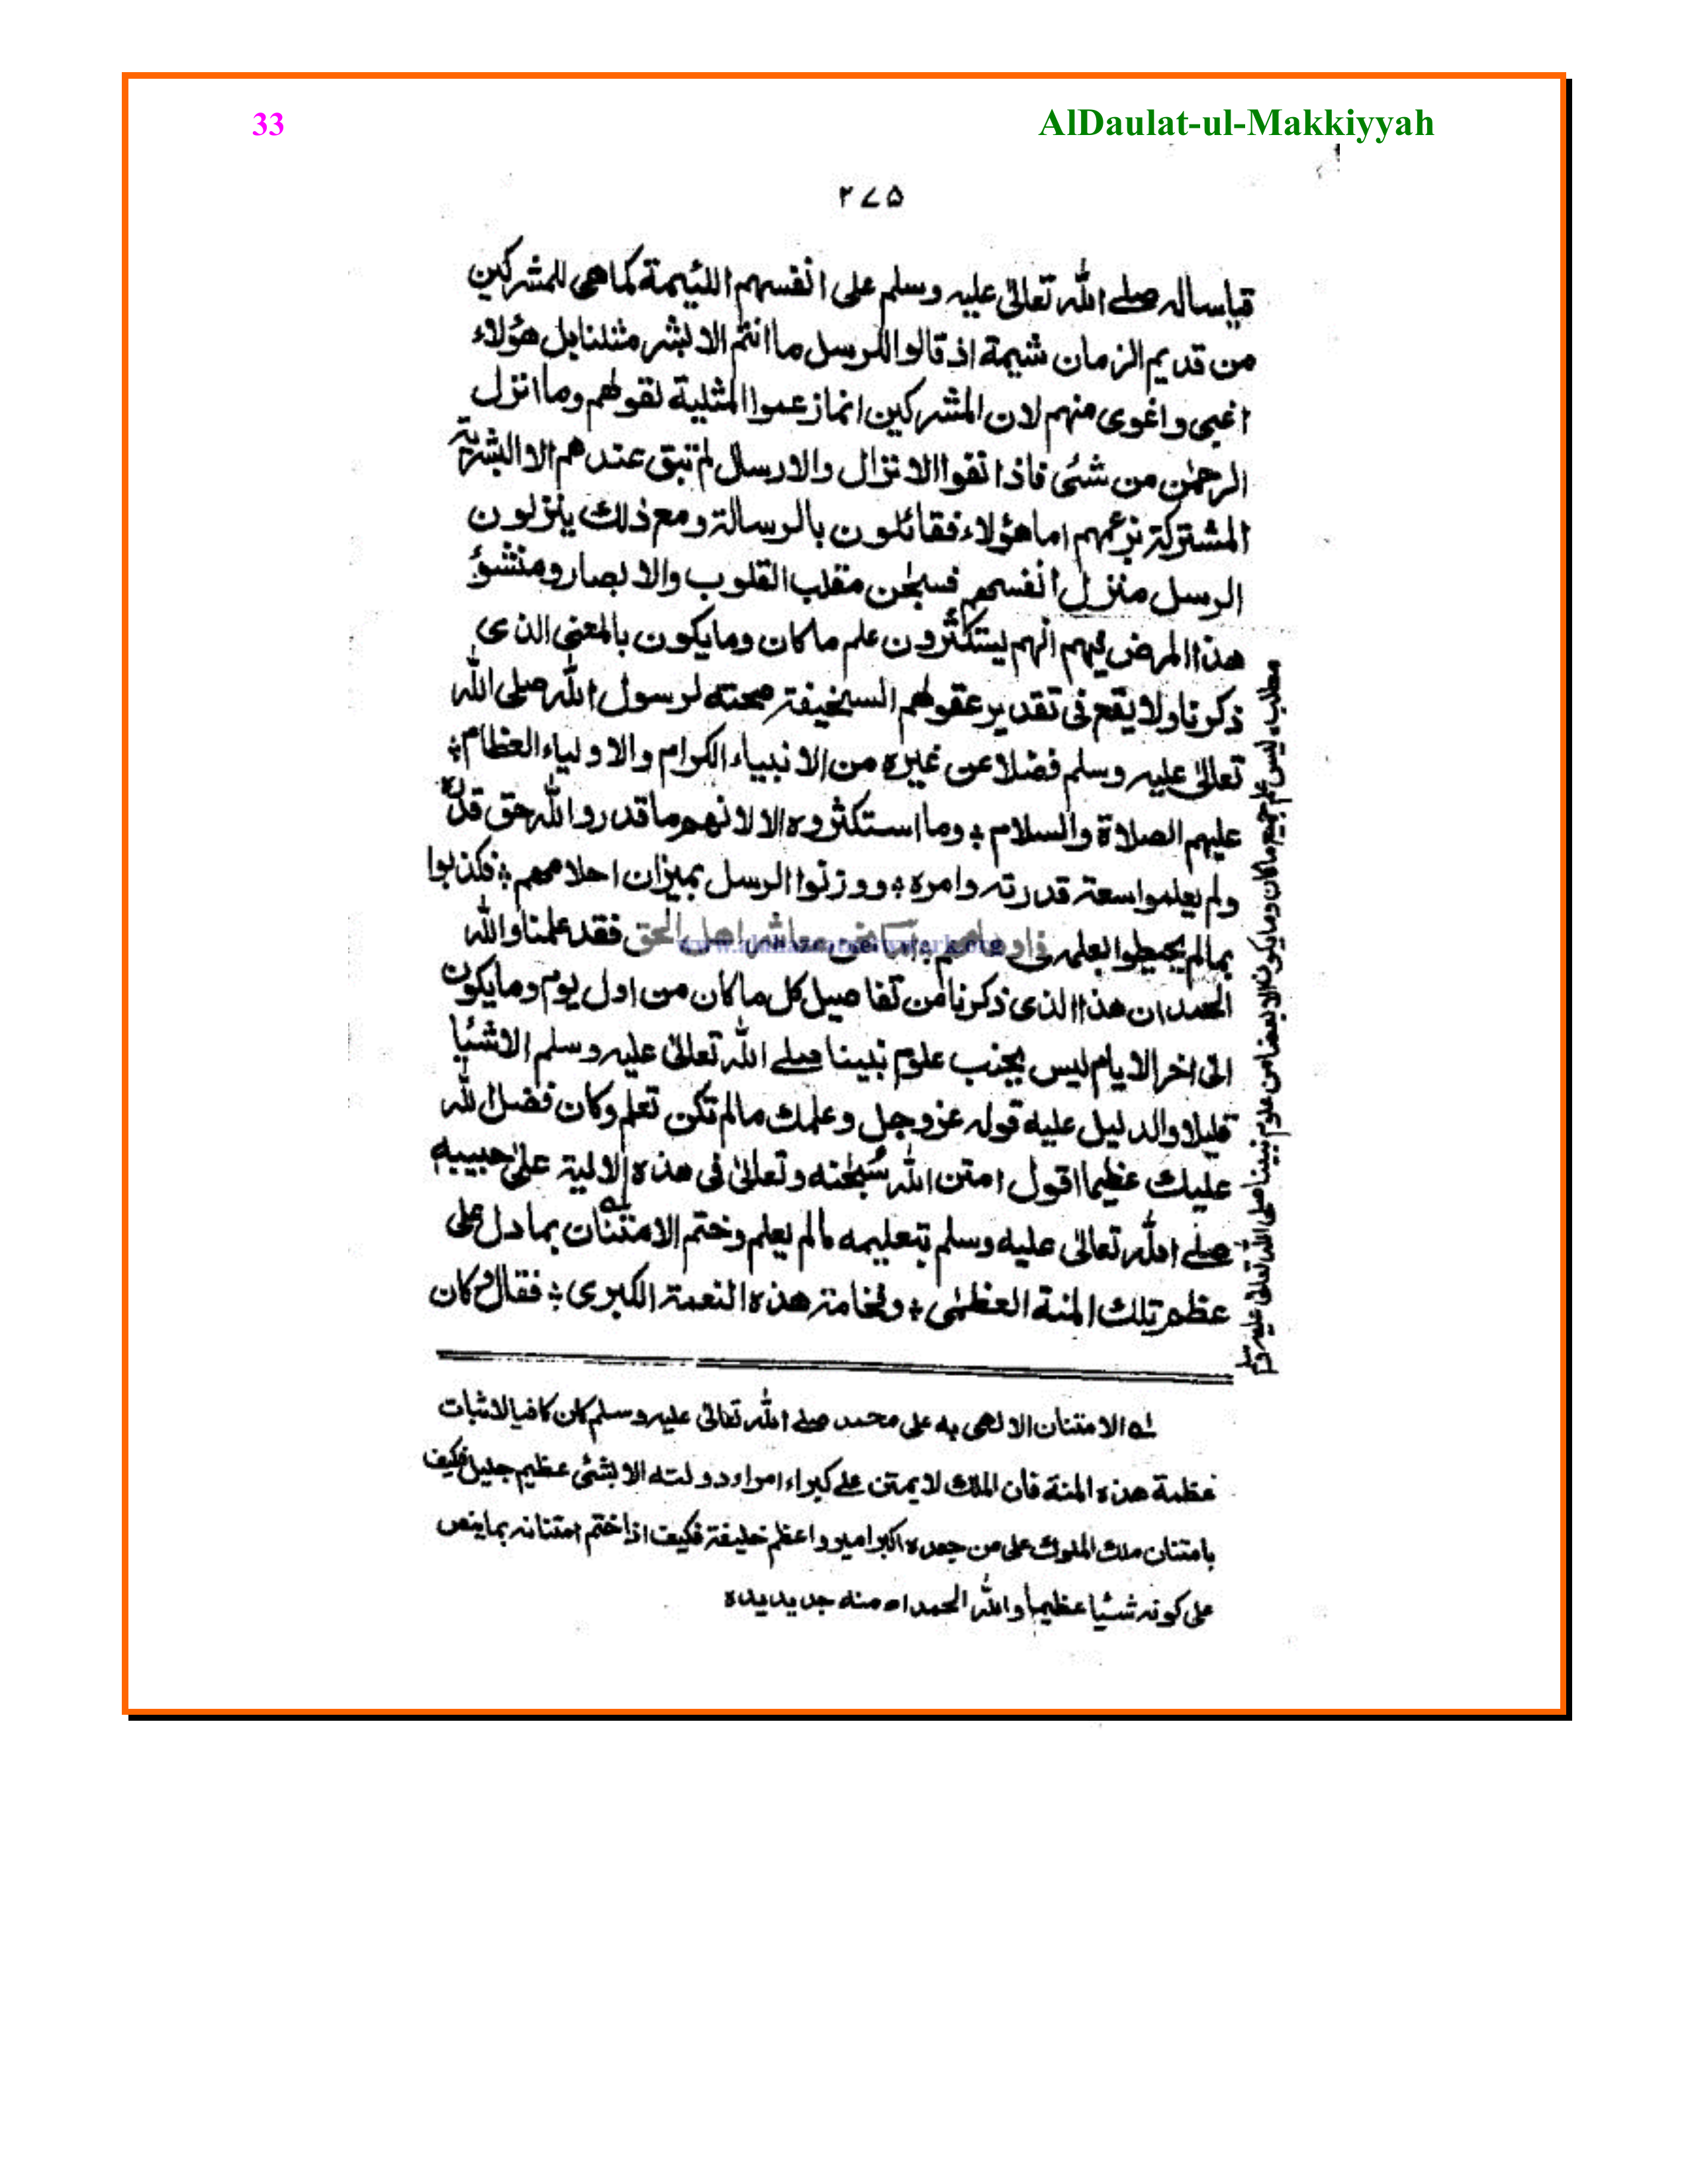 33
AlDaulat-ul-Makkiyyah
٢٧٥
قياسا له صلے الله تعالیٰ عليه وسلم علی انفسهم اللئيمة كما هی للمشركين
من قديم الزمان شيمة اذ قالوا للرسل ما انتم الا بشر مثلنا بل هؤلاء
اغبی واغوی منهم لان المشركين انما زعموا المثلية لقولهم وما انزل
الرحمٰن من شئی فاذا نفوا الانزال والارسال لم تبق عندهم الا البشرية
المشتركة بزعمهم اما هؤلاء فقائلون بالرسالة ومع ذٰلك ينزلون
الرسل منزل انفسهم فسبحٰن مقلب القلوب والابصار ومنشؤ
هذا المرض فيهم انهم يستكثرون علم ماكان ومايكون بالمعنی الذی
ذكرنا ولا يقع فی تقدير عقولهم السخيفة صحته لرسول الله صلی الله
تعالیٰ عليه وسلم فضلا عن غيره من الانبياء الكرام والاولياء العظام؛
عليهم الصلاة والسلام ؛ وما استكثروه الا لانهم ما قدروا الله حق قدره
ولم يعلموا سعة قدرته وامره ؛ ووزنوا الرسل بميزان احلامهم ؛ فكذبوا
بما لم يحيطوا بعلمه معاشر اهل الحق فقد علمنا ولله
الحمد ان هذا الذی ذكرنا من تفاصيل كل ماكان من اول يوم ومايكون
الی اٰخر الايام ليس بجنب علوم نبينا صلے الله تعالیٰ عليه وسلم الا شيئا
قليلا والدليل عليه قوله عزوجل وعلمك مالم تكن تعلم وكان فضل الله
عليك عظيما اقول امتن الله سُبحٰنه وتعالیٰ فی هذه الاٰية علیٰ حبيبه
صلے الله تعالیٰ عليه وسلم بتعليمه مالم يعلم وختم الامتنان بما دل علی
عظم تلك المنة العظمٰی ؛ وفخامة هذه النعمة الكبری ؛ فقال وكان
مطلب ليس علم جميع ماكان ومايكون الا بعضا من علوم نبينا صلی الله تعالیٰ عليه وسلم
له الامتنان الالهی به علی محمد صلے الله تعالیٰ عليه وسلم كان كافيا لاثبات
عظمة هذه المنة فان الملك لا يمتن علے كبراء امراء دولته الا بشئی عظيم جليل فكيف
بامتنان ملك الملوك علی من جعله اكبر امير واعظم خليفة فكيف اذا ختم امتنانه بما ينص
علی كونه شيئا عظيما ولله الحمد اه منه جديده